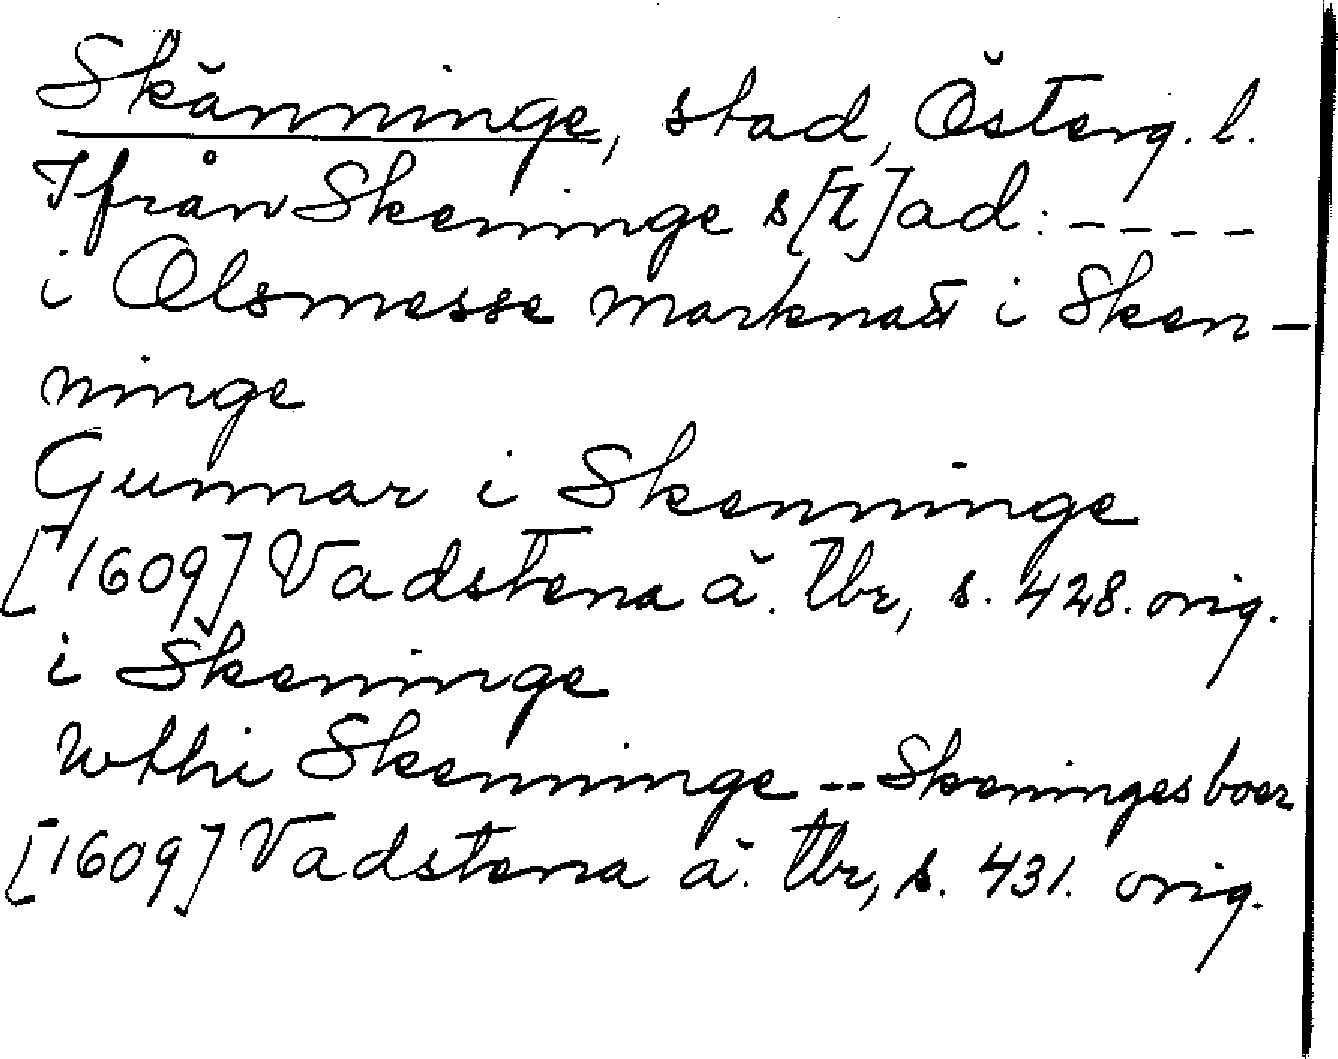 Skänninge, stad, Österg. l.
Ifrån Skeninge s[t]ad: ----
i Olsmesse marknatt i Sken-
ninge
Gunnar i Skenninge
[1609] Vadstena ä. Tbr, s. 428. orig.
i Skeninge
Wthi Skenninge -- Skeningesboer
[1609] Vadstena ä. Tbr, s. 431. orig.